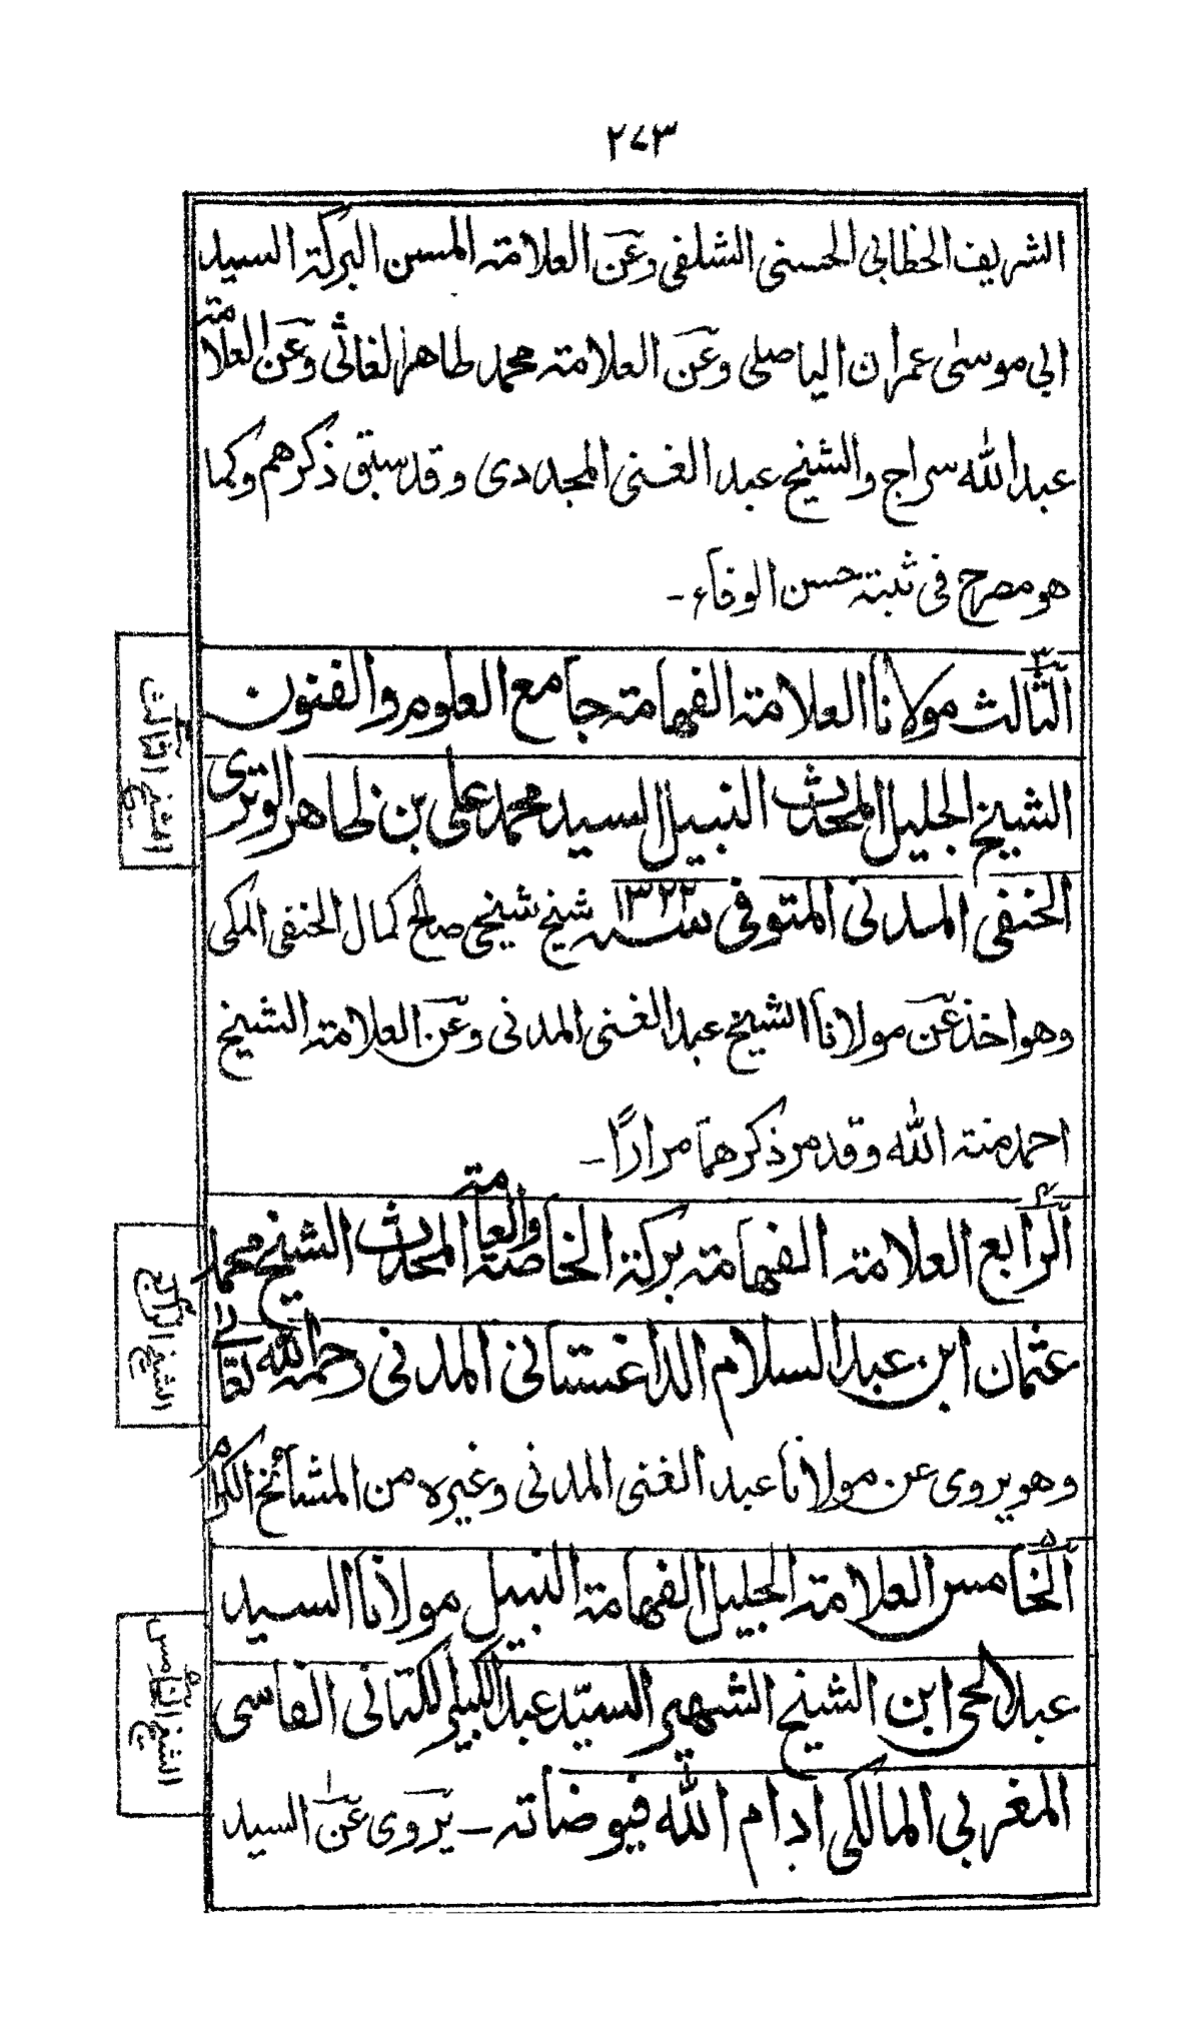 ٢٧٣
الشريف الخطابي الحسني الشلفي وعن العلامة المسن البركة السيد
ابي موسى عمران الياصلي وعن العلامة محمد طاهر الغاتي وعن العلامة
عبد الله سراج والشيخ عبد الغني المجددى وقد سبق ذكرهم وكما
هو مصرح في ثبته حسن الوفاء۔
الثالث مولانا العلامة الفهامة جامع العلوم والفنون
الشيخ الثالث
الشيخ الجليل المحدث النبيل السيد محمد على بن ظاهر الوترى
الحنفي المدني المتوفى سنة ١٣٢٢ شيخ شيخي صالح كمال الحنفي المكي
وهو اخذ عن مولانا الشيخ عبد الغني المدني وعن العلامة الشيخ
احمد منة الله وقد مر ذكرهما مرارًا۔
٤
الرابع العلامة الفهامة بركة الخاصة والعامة المحدث الشيخ محمد
الشيخ الرابع
عثمان ابن عبد السلام الداغستاني المدني رحمه الله تعالى
وهو يروى عن مولانا عبد الغني المدني وغيره من المشائخ الكرام
٥
الخامس العلامة الجليل الفهامة النبيل مولانا السيد
الشيخ الخامس
عبد الحي ابن الشيخ الشهير السيد عبد الكبير الكتاني الفاسى
المغربي المالكي ادام الله فيوضاته۔ يروى عن السيد